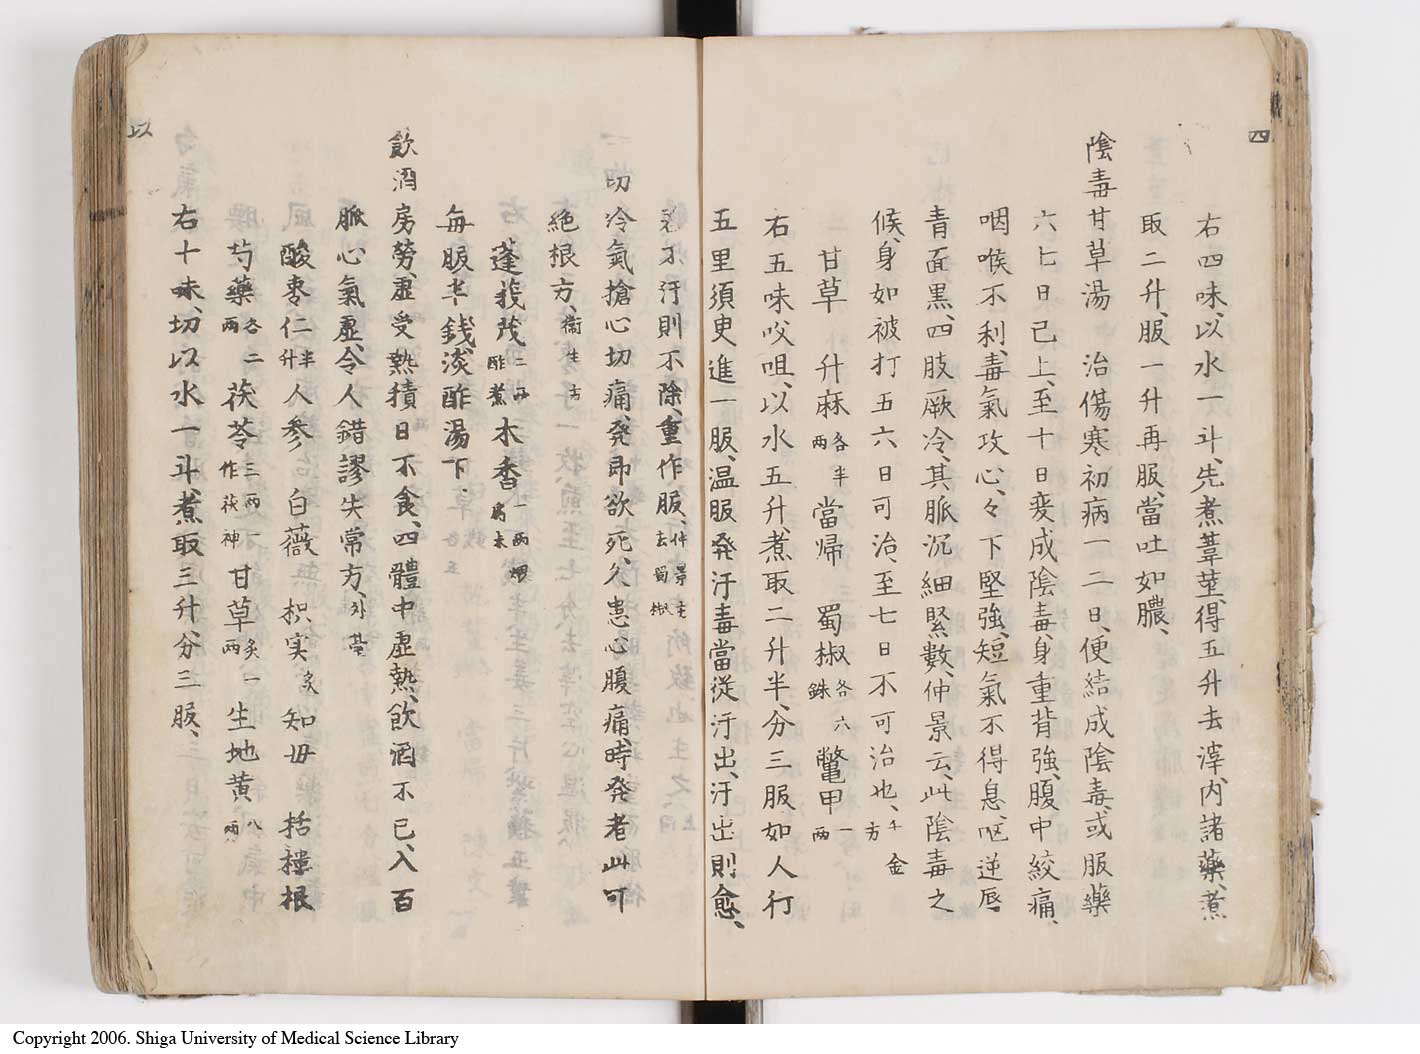 四
右四味、以水一斗、先煮葦莖、得五升去滓、内諸藥、煮
取二升、服一升再服、當吐如膿、
陰毒甘草湯　治傷寒初病一二日、便結成陰毒、或服藥
六七日已上、至十日変成陰毒、身重背強、腹中絞痛、
咽喉不利、毒氣攻心、々下堅強、短氣不得息、呕逆唇
青面黒、四肢厥冷、其脈沉細緊數、仲景云、此陰毒之
候、身如被打五六日可治、至七日不可治也、千金方
甘草　升麻各半兩　當帰　蜀椒各六銖　鼈甲一兩
右五味㕮咀、以水五升、煮取二升半、分三服如人行
五里須更進一服、温服発汗毒當従汗出、汗出則愈、
若不汗則不除、重作服、仲景方去蜀椒
一切冷氣搶心切痛、発即欲死、久患心腹痛、時発者此可
絶根方、衛生方
蓬莪茂二兩醋煮　木香一兩煨為末
毎服半錢、淡酢湯下.
飲酒房勞、虚受熱積日不食、四體中虚熱、飲酒不已、入百
脈心氣虚、令人錯謬失常方、外臺
酸棗仁半升　人参　白薇　枳実炙　知毋　括樓根
芍藥各二兩　茯苓三兩一作茯神　甘草炙一兩　生地黄八兩
右十味、切以水一斗、煮取三升分三服、
以
Copyright 2006. Shiga University of Medical Science Library